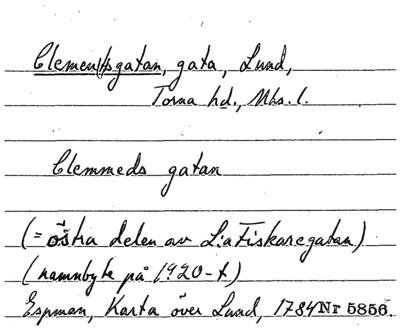 Clemensgatan, gata, Lund,
Torna hd., Mhs. l.
Clemmeds gatan
(= östra delen av L:a Fiskaregatan)
(namnbyte på 1920-t)
Espman, Karta över Lund, 1784 Nr 5856.